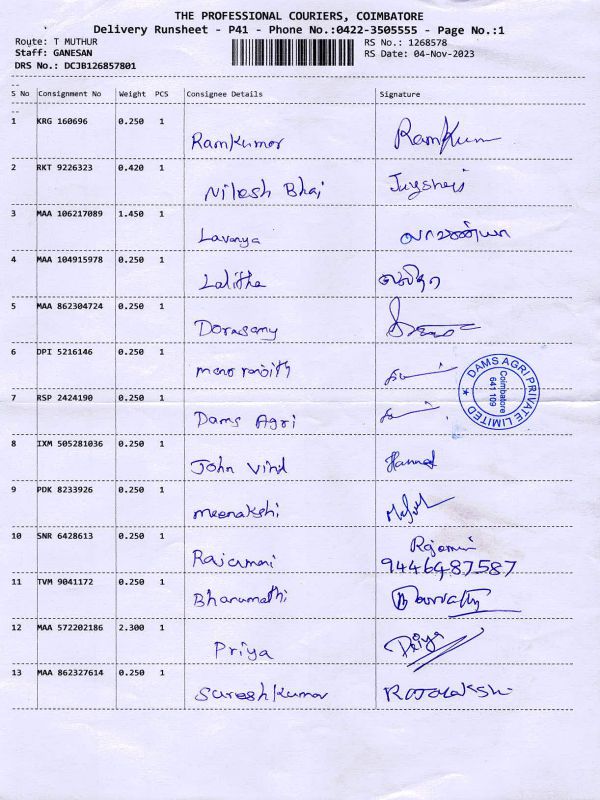 THE PROFESSIONAL COURIERS, COIMBATORE
Delivery Runsheet - P41 - Phone No.:0422-3505555 - Page No.:1
Route: T MUTHUR RS No.: 1268578
Staff: GANESAN RS Date: 04-Nov-2023
DRS No.: DCJB126857801
S No Consignment No Weight PCS Consignee Details Signature
1 KRG 160696 0.250 1
Ramkumar Ramkum
2 RKT 9226323 0.420 1
Nilesh Bhai
3 MAA 106217089 1.450 1
Lavanya லாவண்யா
4 MAA 104915978 0.250 1
Lalitha லலிதா
5 MAA 862304724 0.250 1
Dorasamy
6 DPI 5216146 0.250 1
mano ranjith
DAMS AGRI PRIVATE LIMITED
Coimbatore
641 109
7 RSP 2424190 0.250 1
Dams Agri
8 IXM 505281036 0.250 1
John Vind
9 PDK 8233926 0.250 1
meenakshi
10 SNR 6428613 0.250 1
Rajamani
9446487587
11 TVM 9041172 0.250 1
Bhanumathi
12 MAA 572202186 2.300 1
Priya Priya
13 MAA 862327614 0.250 1
Sureshkumar